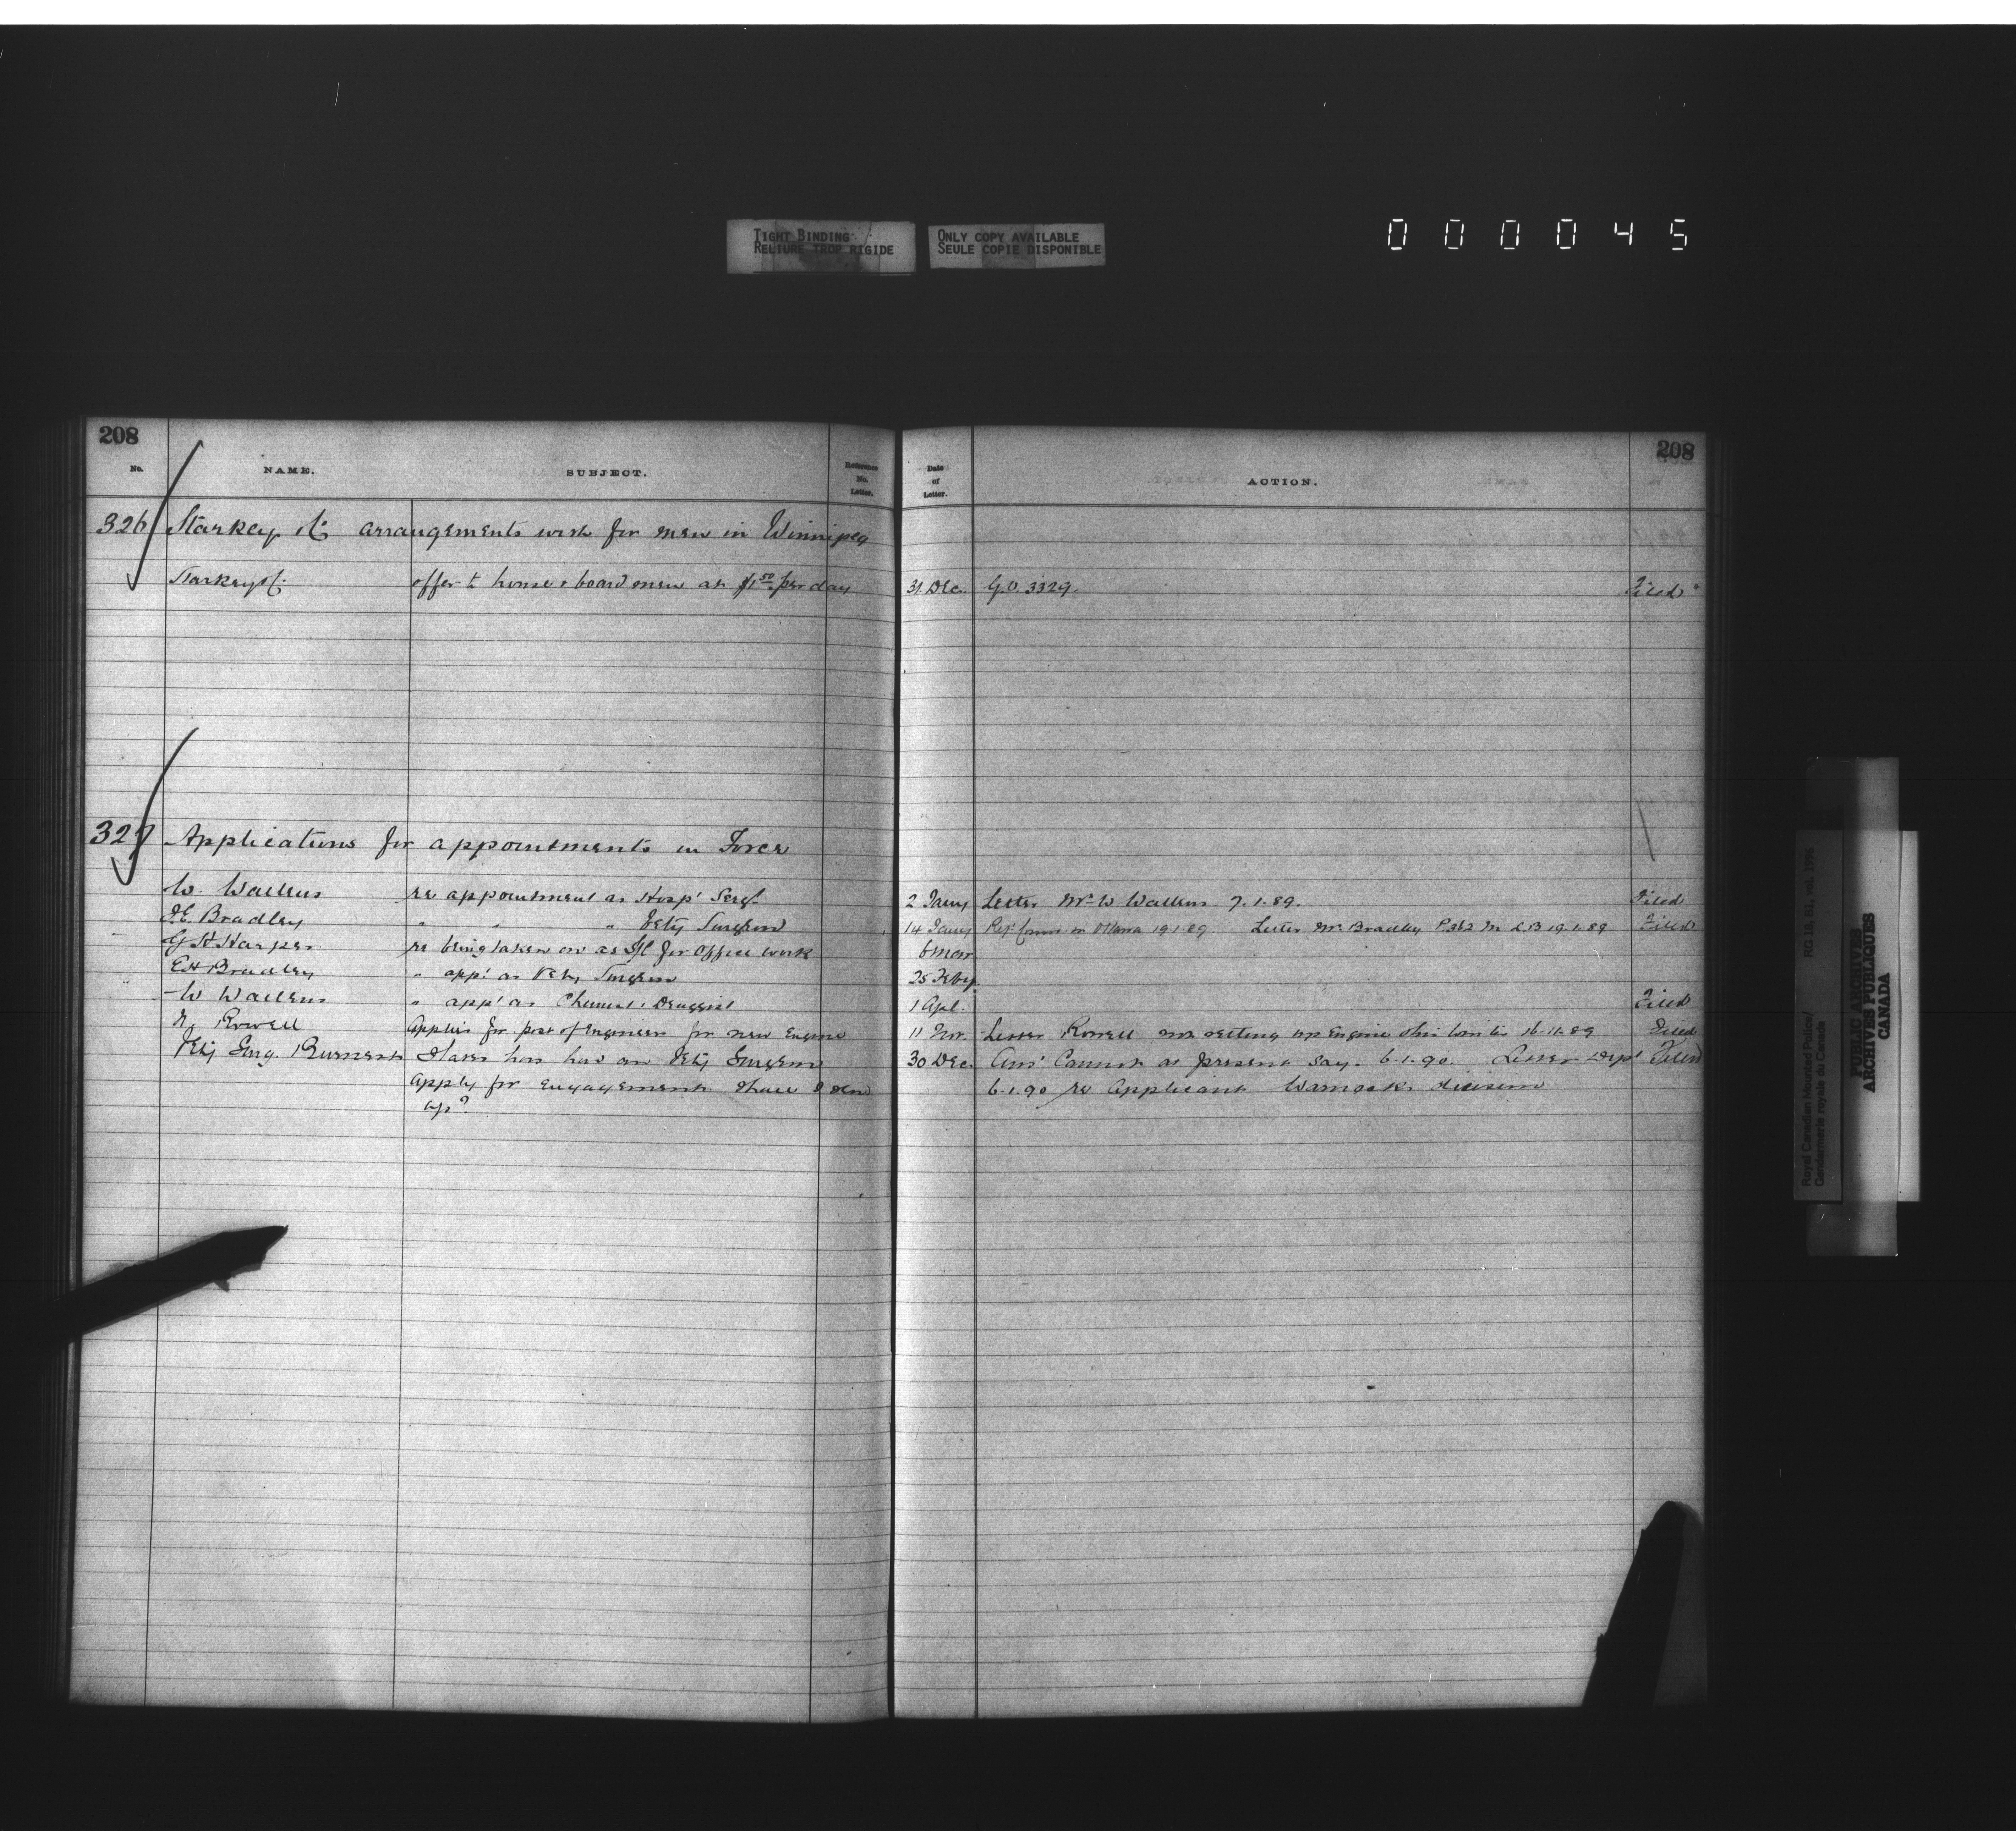 TIGHT BINDING
RELIURE TROP RIGIDE
ONLY COPY AVAILABLE
SEULE COPIE DISPONIBLE
000045
208
208
No.
NAME.
SUBJECT.
Reference No. Letter.
Date of Letter.
ACTION.
326 Starkey arrangements with for men in Winnipeg
Starkey offer to house & board men at $1 50 per day 31 Dec. G.O. 3329. Filed
327 Applications for appointments in Force
W. Wallens re appointment as Hosp' Sergt 2 Jany Letter Mr W Wallens 7.1.89. Filed
J.E. Bradley " " " Vety Surgeon 14 Jany in Ottawa 19.1.89 Letter Mr Bradley P.362 19.1.89 Filed
G H Harper re being taken on as for office work 6 Mar
E H Bradley " app' as Vety Surgeon 25 Feby.
W Wallens " app' as Chemist & Druggist 1 Apl. Filed
Rowell Applies for post of Engineer for new Engine 11 Nov. Letter Rowell setting up Engine this winter 16.11.89 Filed
Vety Surg. Burnett States has had an Vety Surgeon 30 Dec. Ans' Cannot at present say. 6.1.90. Letter Dep' Filed
apply for engagement shall I send 6.1.90 re Applicant Warnock's decision
up?
Royal Canadian Mounted Police/
Gendarmerie royale du Canada
RG 18, B1, vol. 1995
PUBLIC ARCHIVES
ARCHIVES PUBLIQUES
CANADA